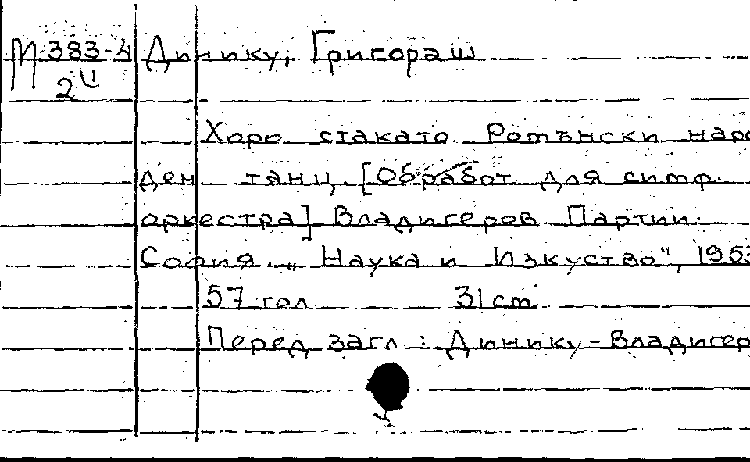 М 383-4 Динику, Григораш
2
Хоро стакато Ротънски наро
ден танц. [Обработ. для симф.
оркестра] Владигеров Партии.
София. „Наука и Изкуство", 1953
57 гол 31 cm
Перед загл.: Динику-Владигер